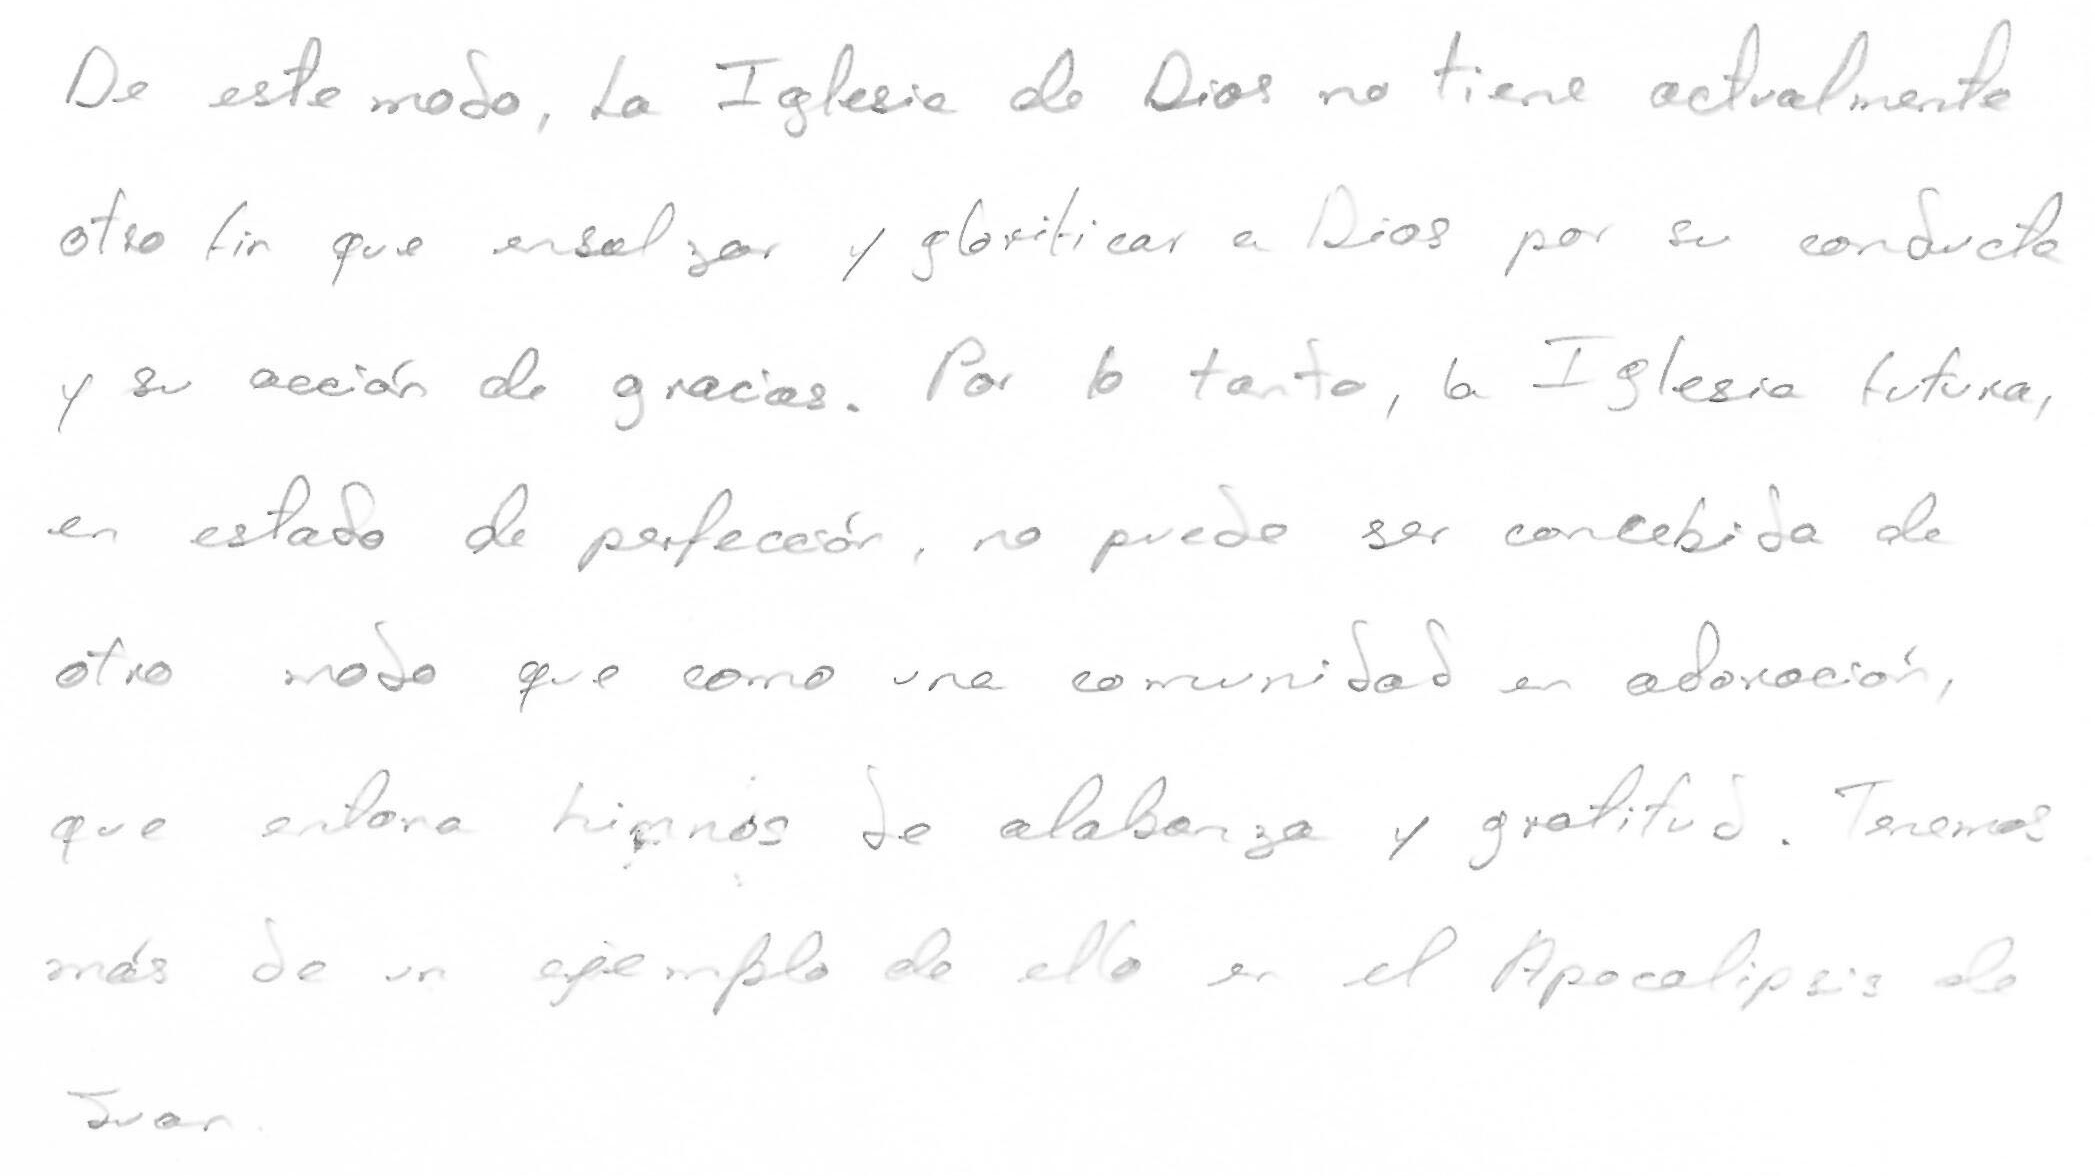 De este modo, La Iglesia de Dios no tiene actualmente
otro fin que ensalzar y glorificar a Dios por su conducta
y su acción de gracias. Por lo tanto, la Iglesia futura,
en estado de perfección, no puede ser concebida de
otro modo que como una comunidad en adoración,
que entona himnos de alabanza y gratitud. Tenemos
más de un ejemplo de ello en el Apocalipsis de
Juan.